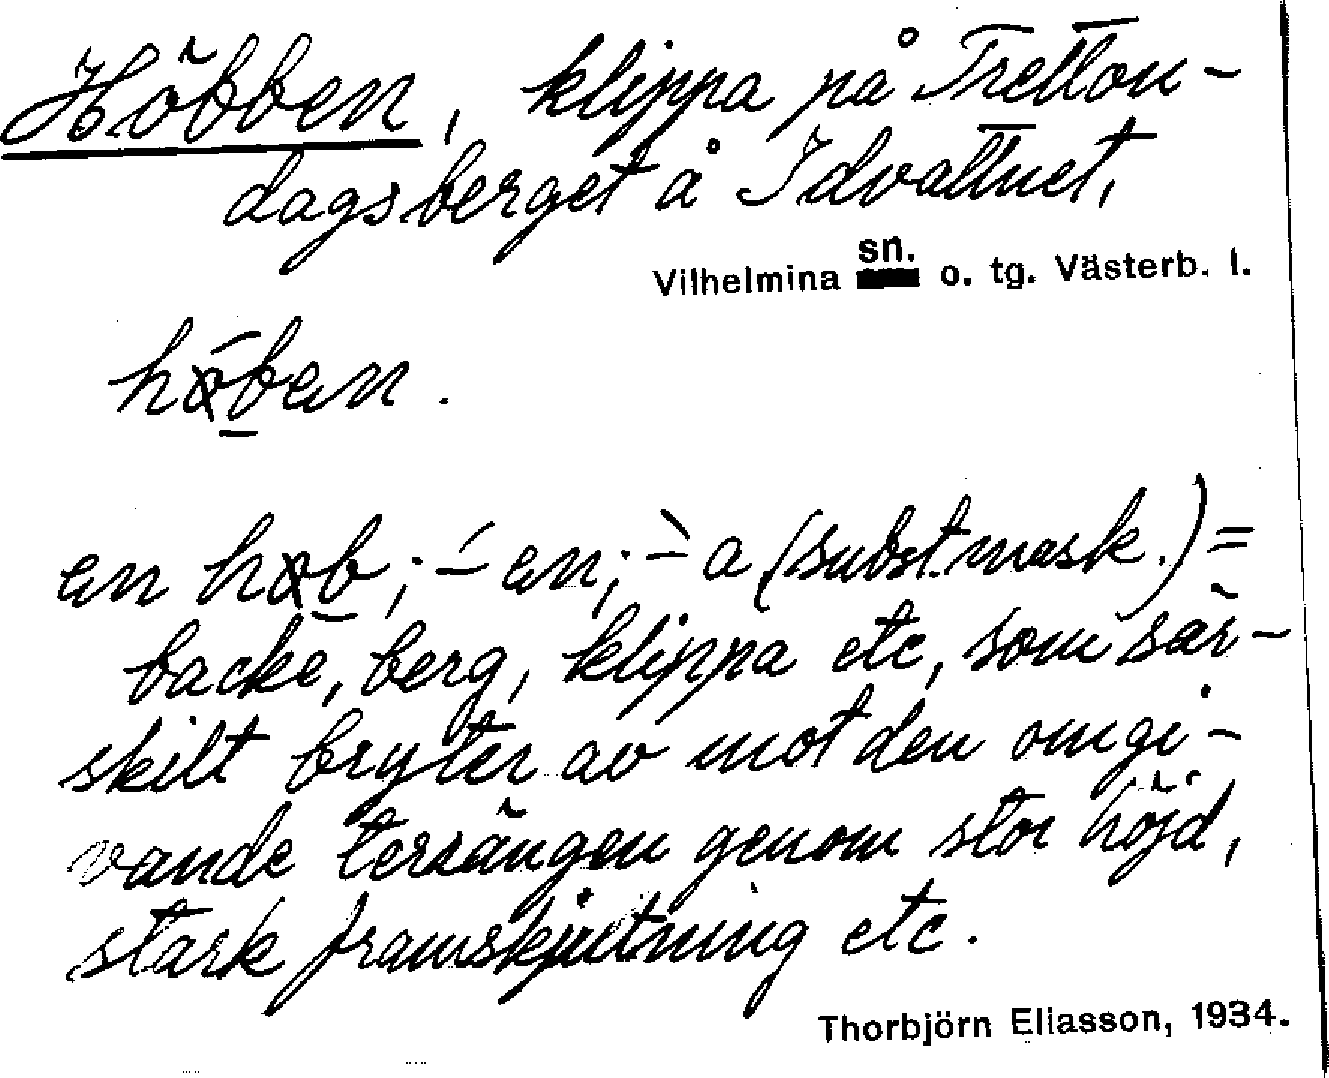 Höbben, klippa på Tretton-
dagsberget å Idvattnet,
Vilhelmina sn. o. tg. Västerb. l.
en ; - en; - a (subst. mask.) =
backe, berg, klippa etc, som sär-
skilt bryter av mot den omgi-
vande terrängen genom stor höjd,
stark framskjutning etc.
Thorbjörn Eliasson, 1934.